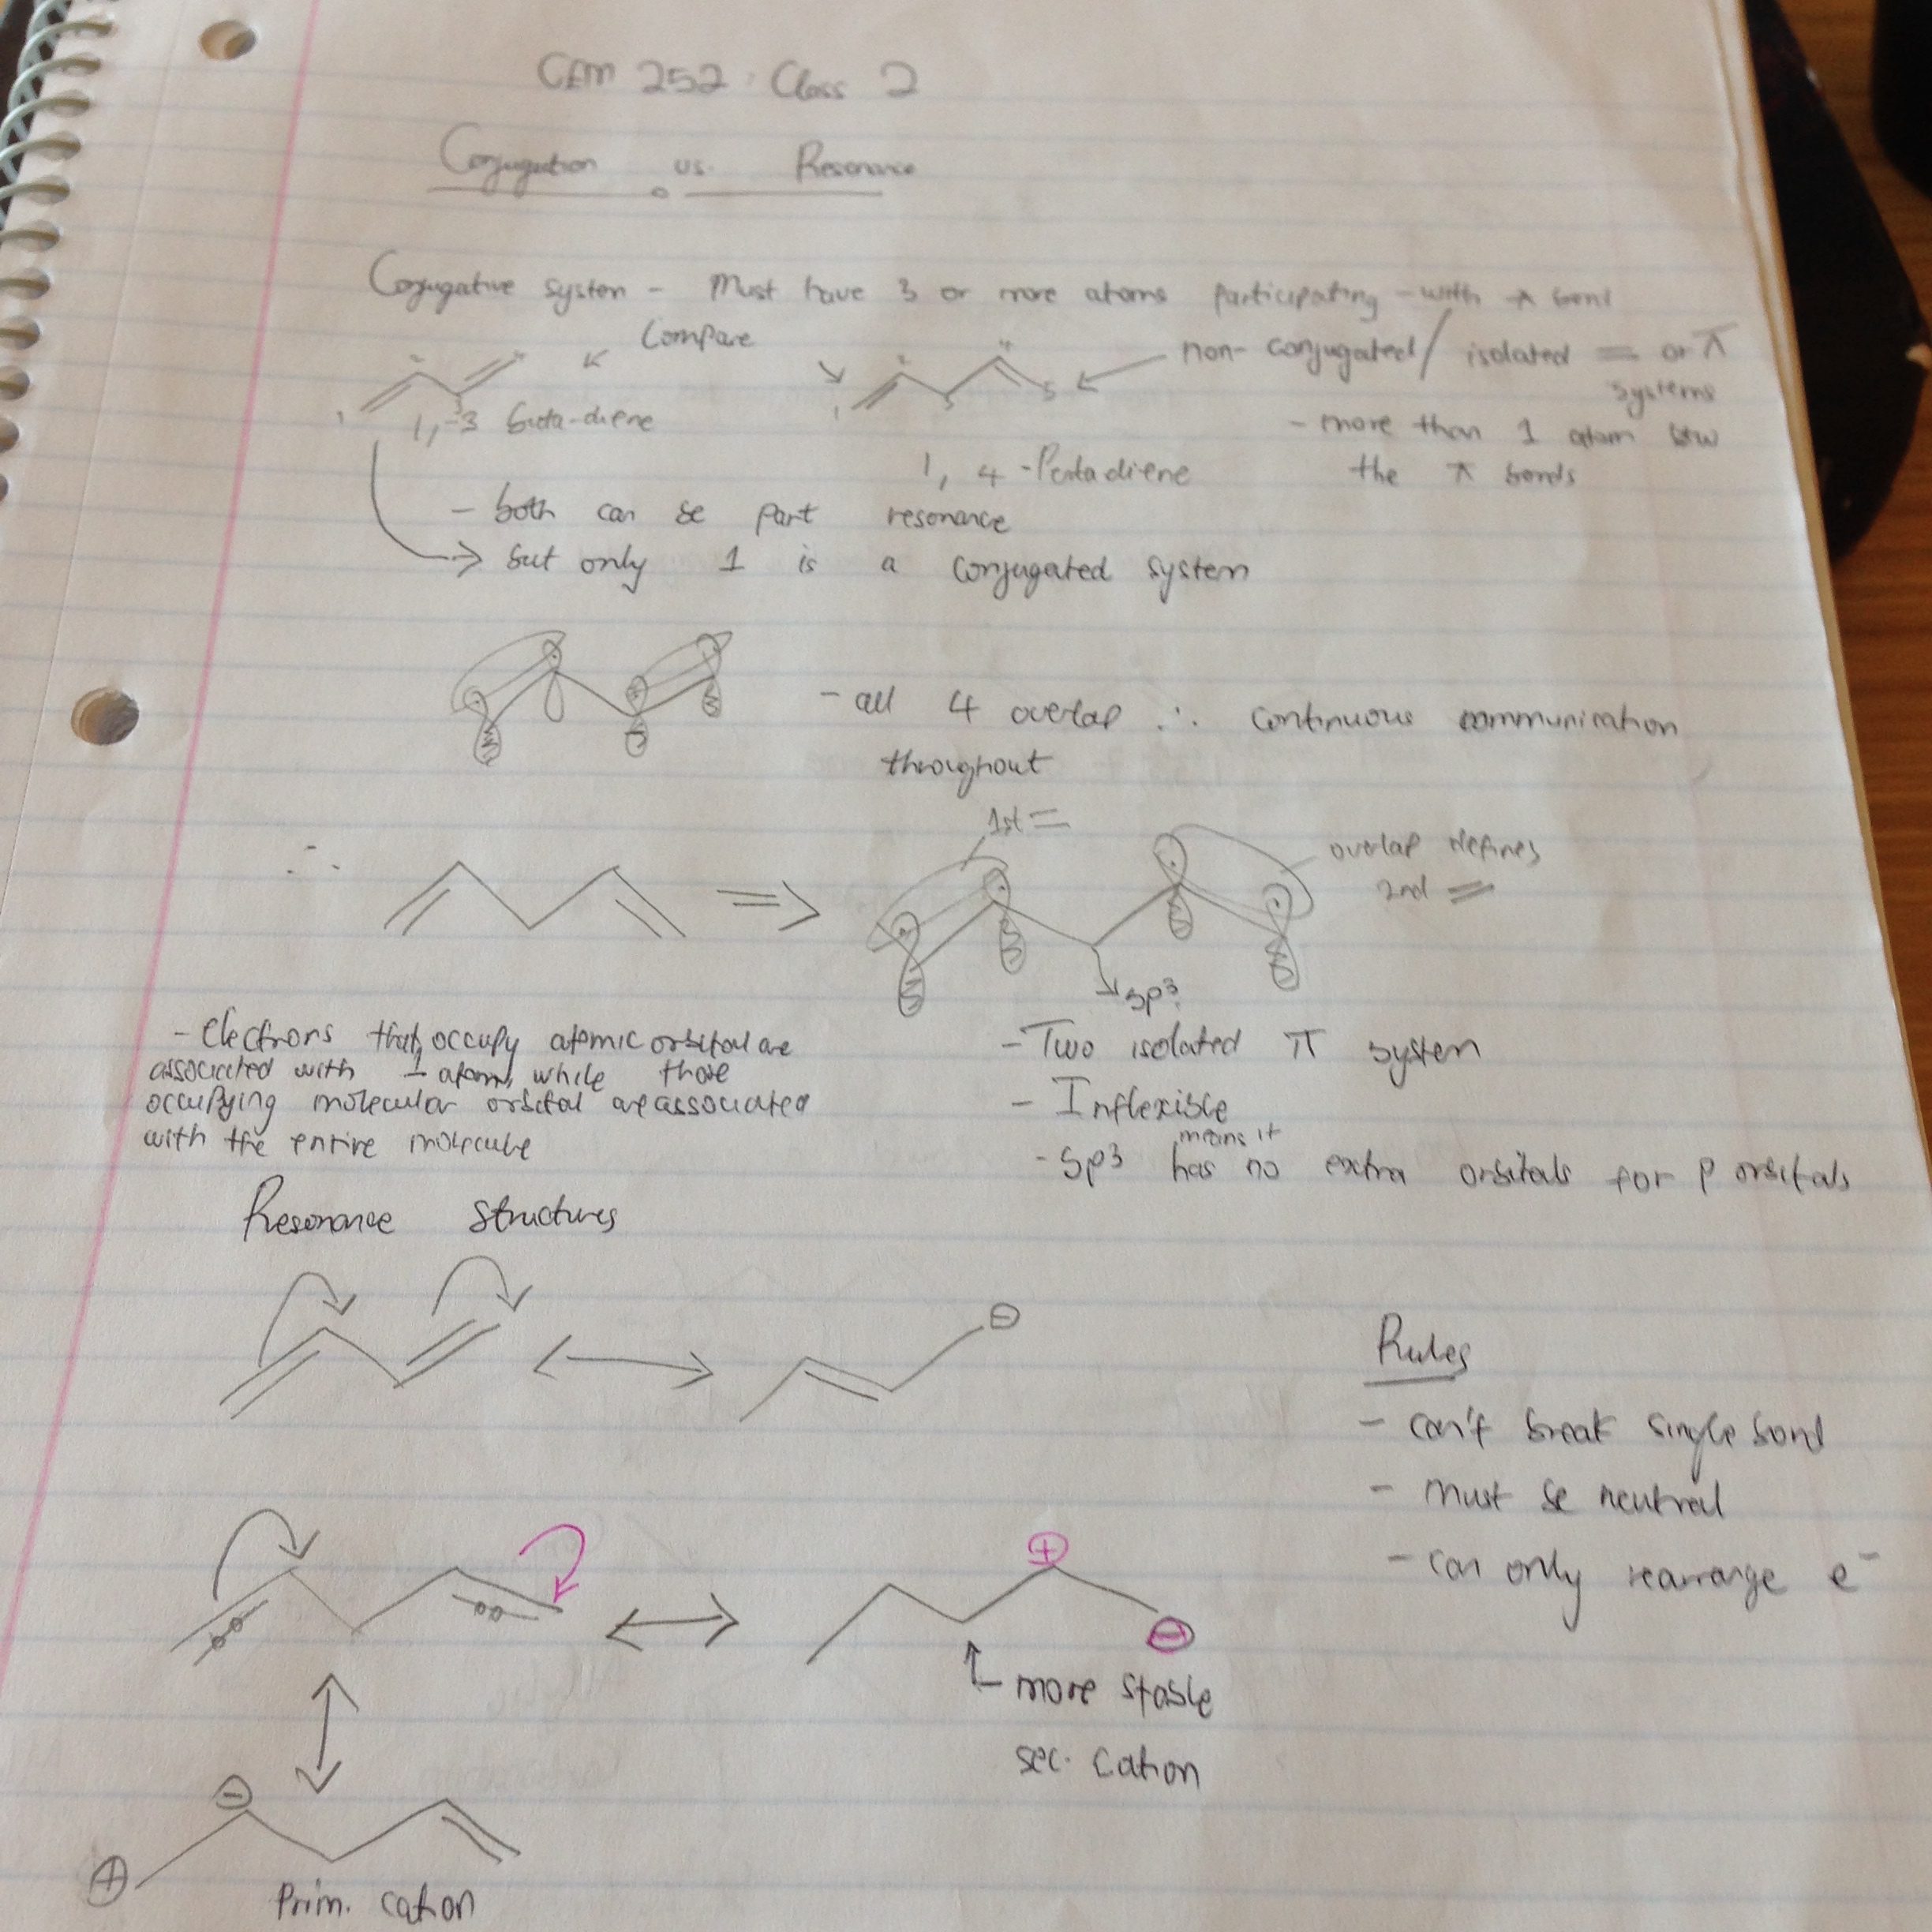 CEM 252: Class 2
Conjugation vs. Resonance
Conjugative system - Must have 3 or more atoms participating - with π bond
Compare
non-conjugated/ isolated = or π
systems
1 2 3 4
1 2 3 4 5
1,-3 buta-diene
- more than 1 atom btw
the π bonds
1, 4 -Pentadiene
- both can be part resonance
→ but only 1 is a conjugated system
- all 4 overlap ∴ continuous communication
throughout
1st =
overlap defines
2nd =
∴
⇒
sp³
- Electrons that occupy atomic orbital are
associated with 1 atom, while those
occupying molecular orbital are associated
with the entire molecule
- Two isolated π system
- Inflexible
means it
- Sp³ has no extra orbitals for p orbitals
Resonance Structures
⊖
Rules
- can't break single bond
- must be neutral
- can only rearrange e⁻
⊕
⊖
more stable
sec. cation
⊖
⊕
Prim. cation